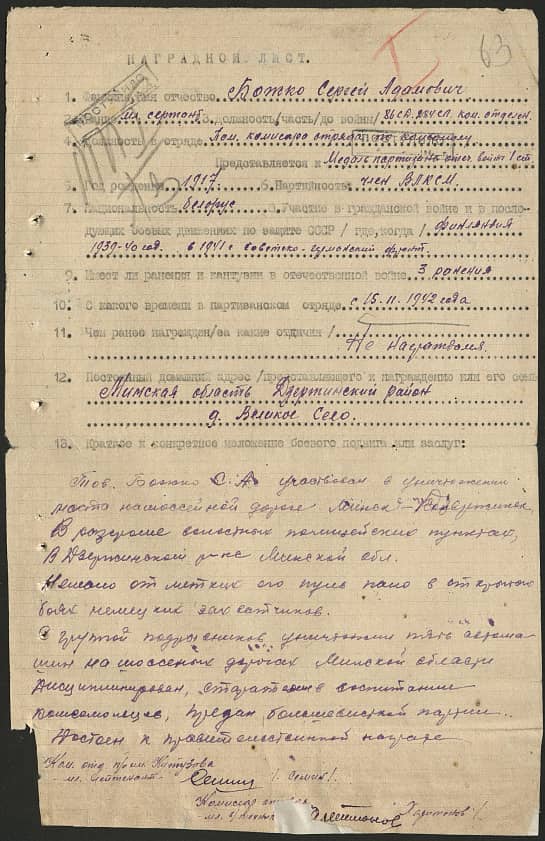 63
НАГРАДНОЙ ЛИСТ.
1. Фамилия имя отчество Божко Сергей Адамович
2. Звание мл. сержант 3. Должность/часть/до войны/ 86 СД. 284 СП. ком. отделен.
4. Должность в отряде Пом. комиссара отряда по комсомолу
Представляется к Медаль партизана отеч. войны 1 ст.
5. Год рождения 1917 6. Партийность член ВЛКСМ.
7. Национальность белорус 8. Участие в гражданской войне и в после-
дующих боевых движениях по защите СССР / где, когда / Финляндия
1939-40 год. в 1941 г советско-германский фронт.
9. Имеет ли ранения и кантузии в отечественной войне 3 ранения
10. С какого времени в партизанском отряде с 15.11.1942 года
11. Чем ранее награжден/за какие отличия /
Не награждался.
12. Постоянный домашний адрес /представляемого к награждению или его семьи
Минская область Дзержинский район
д. Великое Село.
13. Краткое и конкретное изложение боевого подвига или заслуг:
Тов. Божко С.А участвовал в уничтожении
моста на шоссейной дороге Минск-Дзержинск,
В разгроме волостных полицейских пунктах,
В Дзержинском р-не Минской обл.
Немало от метких его пуль пало в открытых
боях немецких захватчиков.
С группой подрывников, уничтожили пять автома-
шин на шоссейных дорогах Минской области
Дисциплинирован, старателен в воспитании
комсомольцев, предан, большевистской партии.
Достоен к правительственной награде
Ком. отд. при им. Кутузова
мл. лейтенант /Семин/.
Комиссар отряда
мл. /Харитонов/.